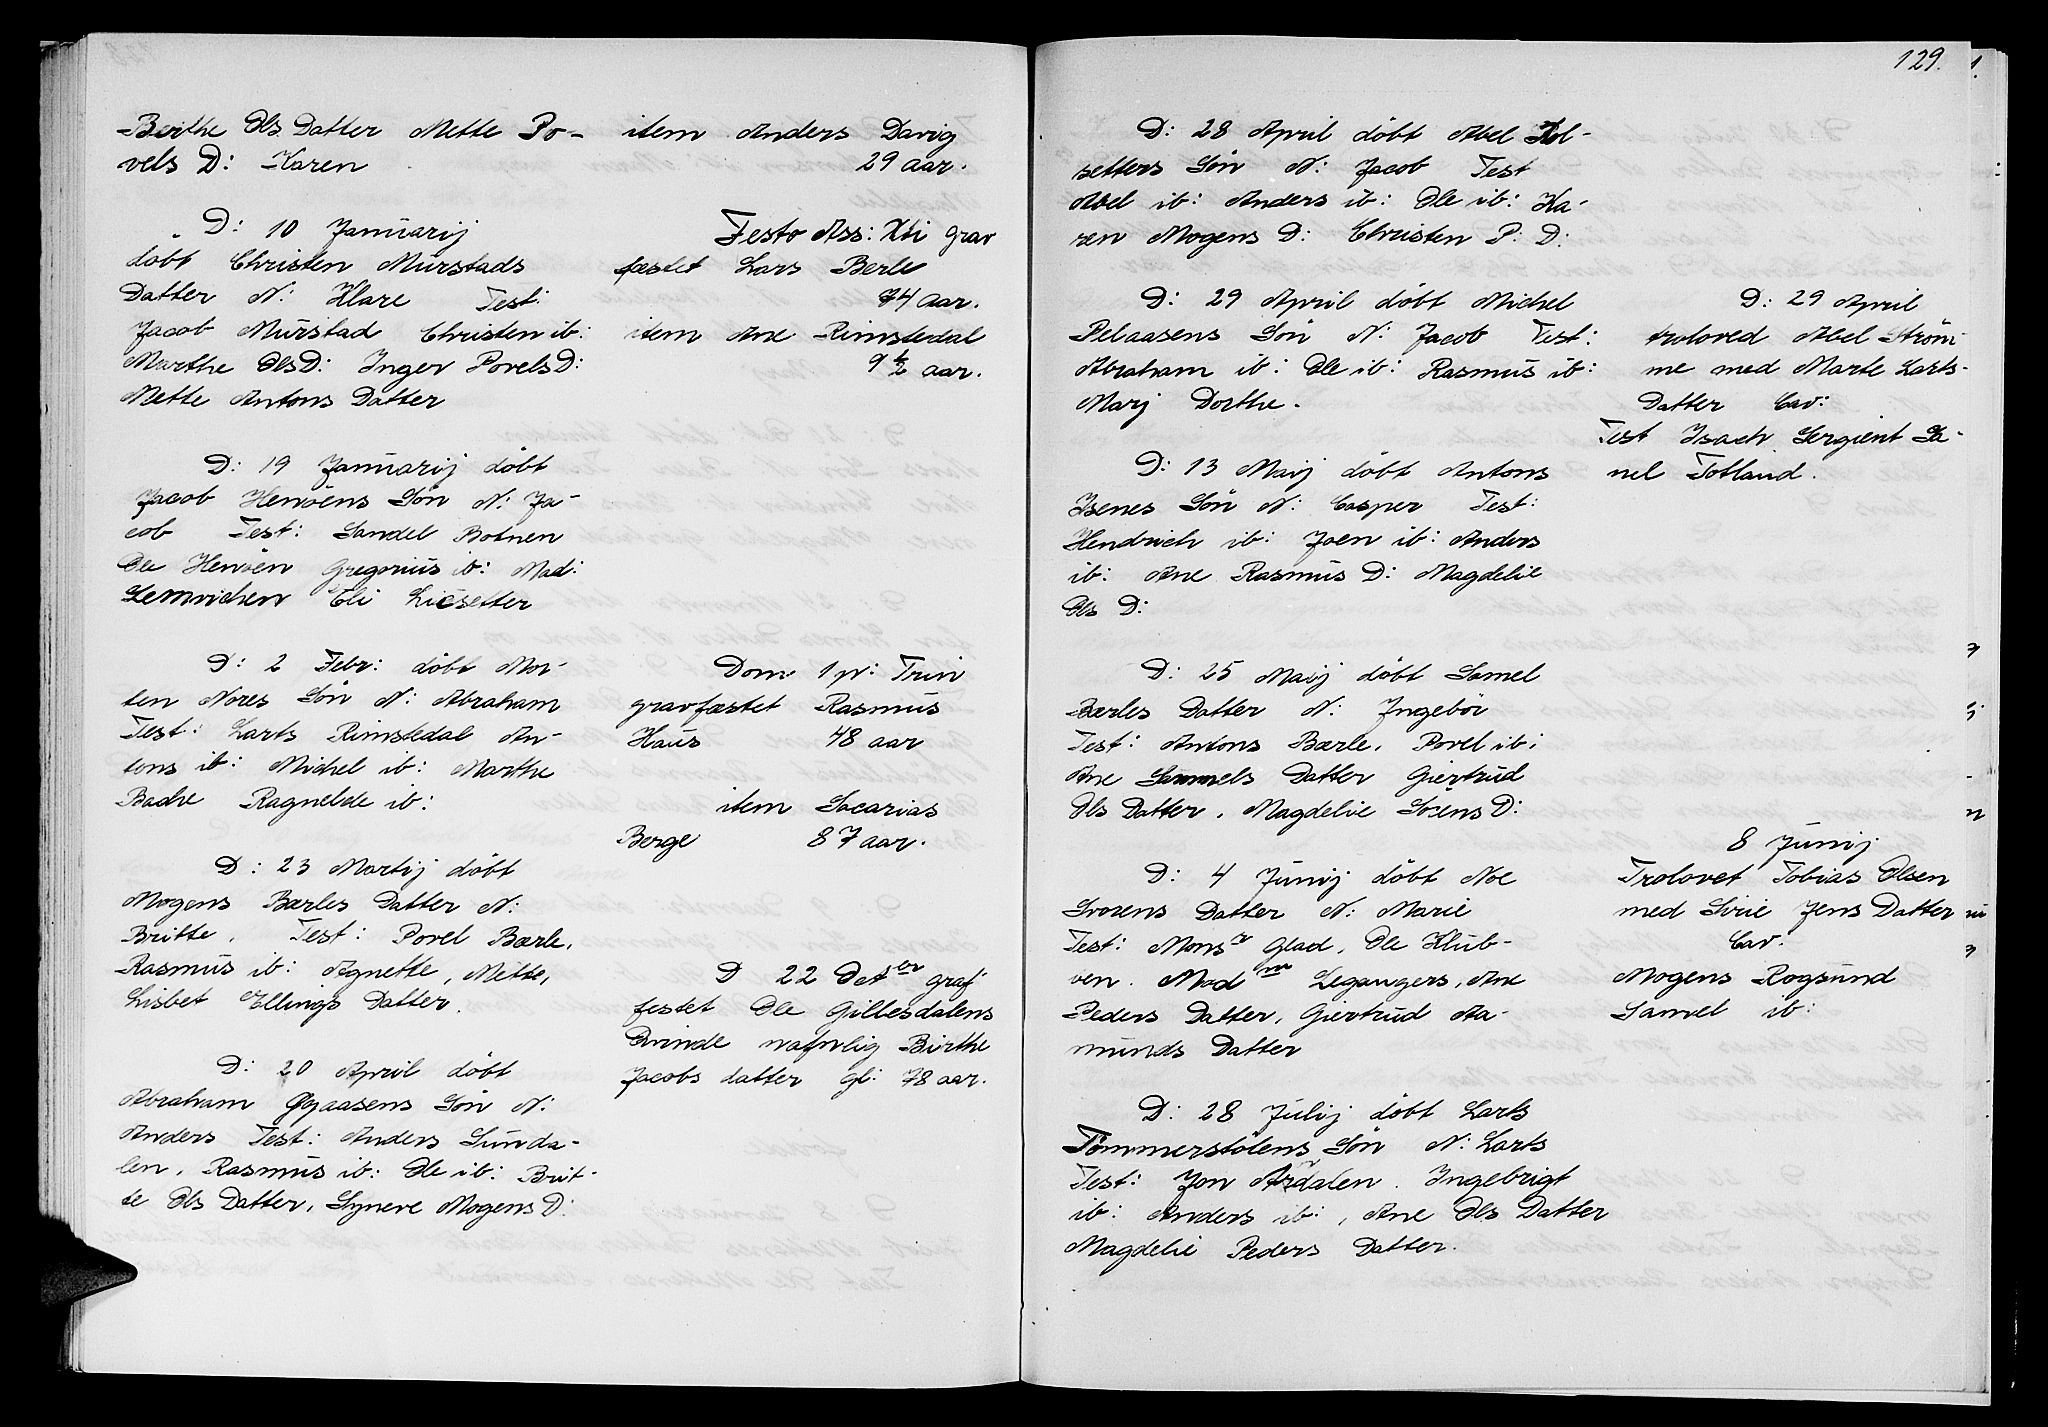 Berthe Ols Datter Mette Po-
vels D: Karen
D: 10 Januarij
döbt Christen Murstads
Datter N: Klare Test:
Jacob Murstad Christen ib:
Marthe OlsD: Inger PovelsD:
Mette Antons Datter
D: 19 Januarij döbt
Jacob Henöens Sön N: Ja-
cob Test: Sandel Botnen
Ole Henöen Gregorius ib: Mad:
Lemvichen Eli Liesetter
D: 2 Febr: döbt Mor-
ten Nores Sön N: Abraham
Test: Larts Rimstedal An-
tons ib: Michel ib: Marthe
Bache Ragnelde ib:
D: 23 Martij döbt
Mogens Bærles Datter N:
Britte. Test: Povel Bærle,
Rasmus ib: Agnette, Mette,
Lisbet Ellings Datter.
D: 20 April döbt
Abraham Øyaasens Sön N:
Anders Test: Anders Sunda-
len, Rasmus ib: Ole ib: Brit-
te Ols Datter, Syneve Mogens D:
item Anders Davig
29 aar.
Festo Ass: Xti grav
fæstet Lars Berle
74 aar.
item Ane Rimstedal
9 ½ aar.
Dom 1 p: Trin
gravfæstet Rasmus
Haus 48 aar
item Sacarias
Berge 87 aar.
D 22 Oct er graf
festet Ole Gillesdalens
Qvinde nafnlig Birthe
Jacobs datter gl: 78 aar.
129.
D: 28 April döbt Abel Tol-
setters Sön N: Jacob Test
Abel ib: Anders ib: Ole ib: Ka-
ren Mogens D: Christen P: D:
D: 29 April döbt Michel
Pelaasens Sön N: Jacob Test:
Abraham ib: Ole ib: Rasmus ib:
Marj Dorthe.
D: 13 Maij döbt Antons
Isenes Sön N: Casper Test:
Hendrich ib: Joen ib: Anders
ib: Ane Rasmus D: Magdelie
Ols D:
D: 25 Maij döbt Samel
Bærles Datter N: Ingebör
Test: Antons Bærle, Povel ib:
Ane Sammels Datter Giertrud
Ols Datter, Magdelie Sörens D:
D: 4 Junij döbt Noe
Svorens Datter N: Marie
Test: Mons r Glad, Ole Klub-
ven. Mad me Legangers, Ane
Peders Datter, Giertrud Aa-
munds Datter
D: 28 Julij döbt Larts
Tömmerstölens Sön N: Larts
Test: Jon Ardalen. Ingebrigt
ib: Anders ib:, Ane Ols Datter
Magdelie Peders Datter.
D: 29 April
troloved Abel Ström
me med Marte Larts-
Datter Cav:
Test Isach Sergient Da-
nel Totland.
8 Junij
Trolovet Tobias Olsen
med Sirie Jens Datter
Cav.
Mogens Rogsund
Samel ib: